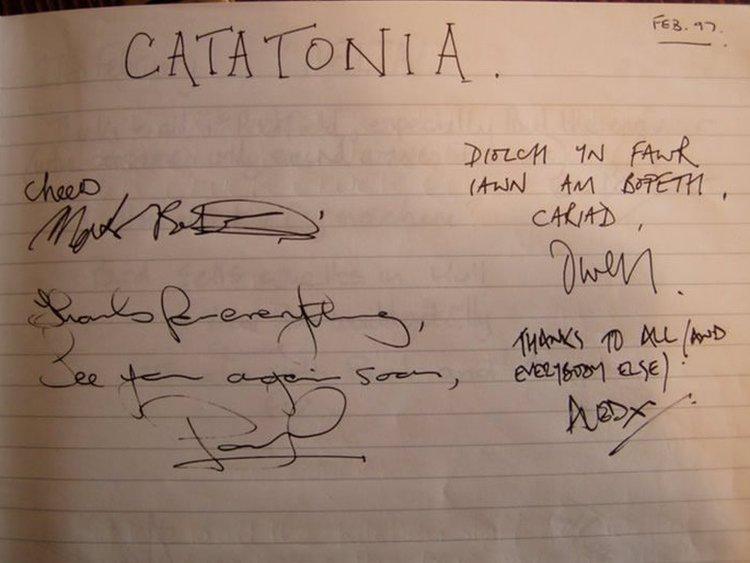 FEB. 97.
CATATONIA.
cheers
DIOLCH YN FAWR
IAWN AM BOPETH,
CARIAD,
Owen.
Thanks for everything,
See you again soon,
Paul
THANKS TO ALL (AND
EVERYBODY ELSE)